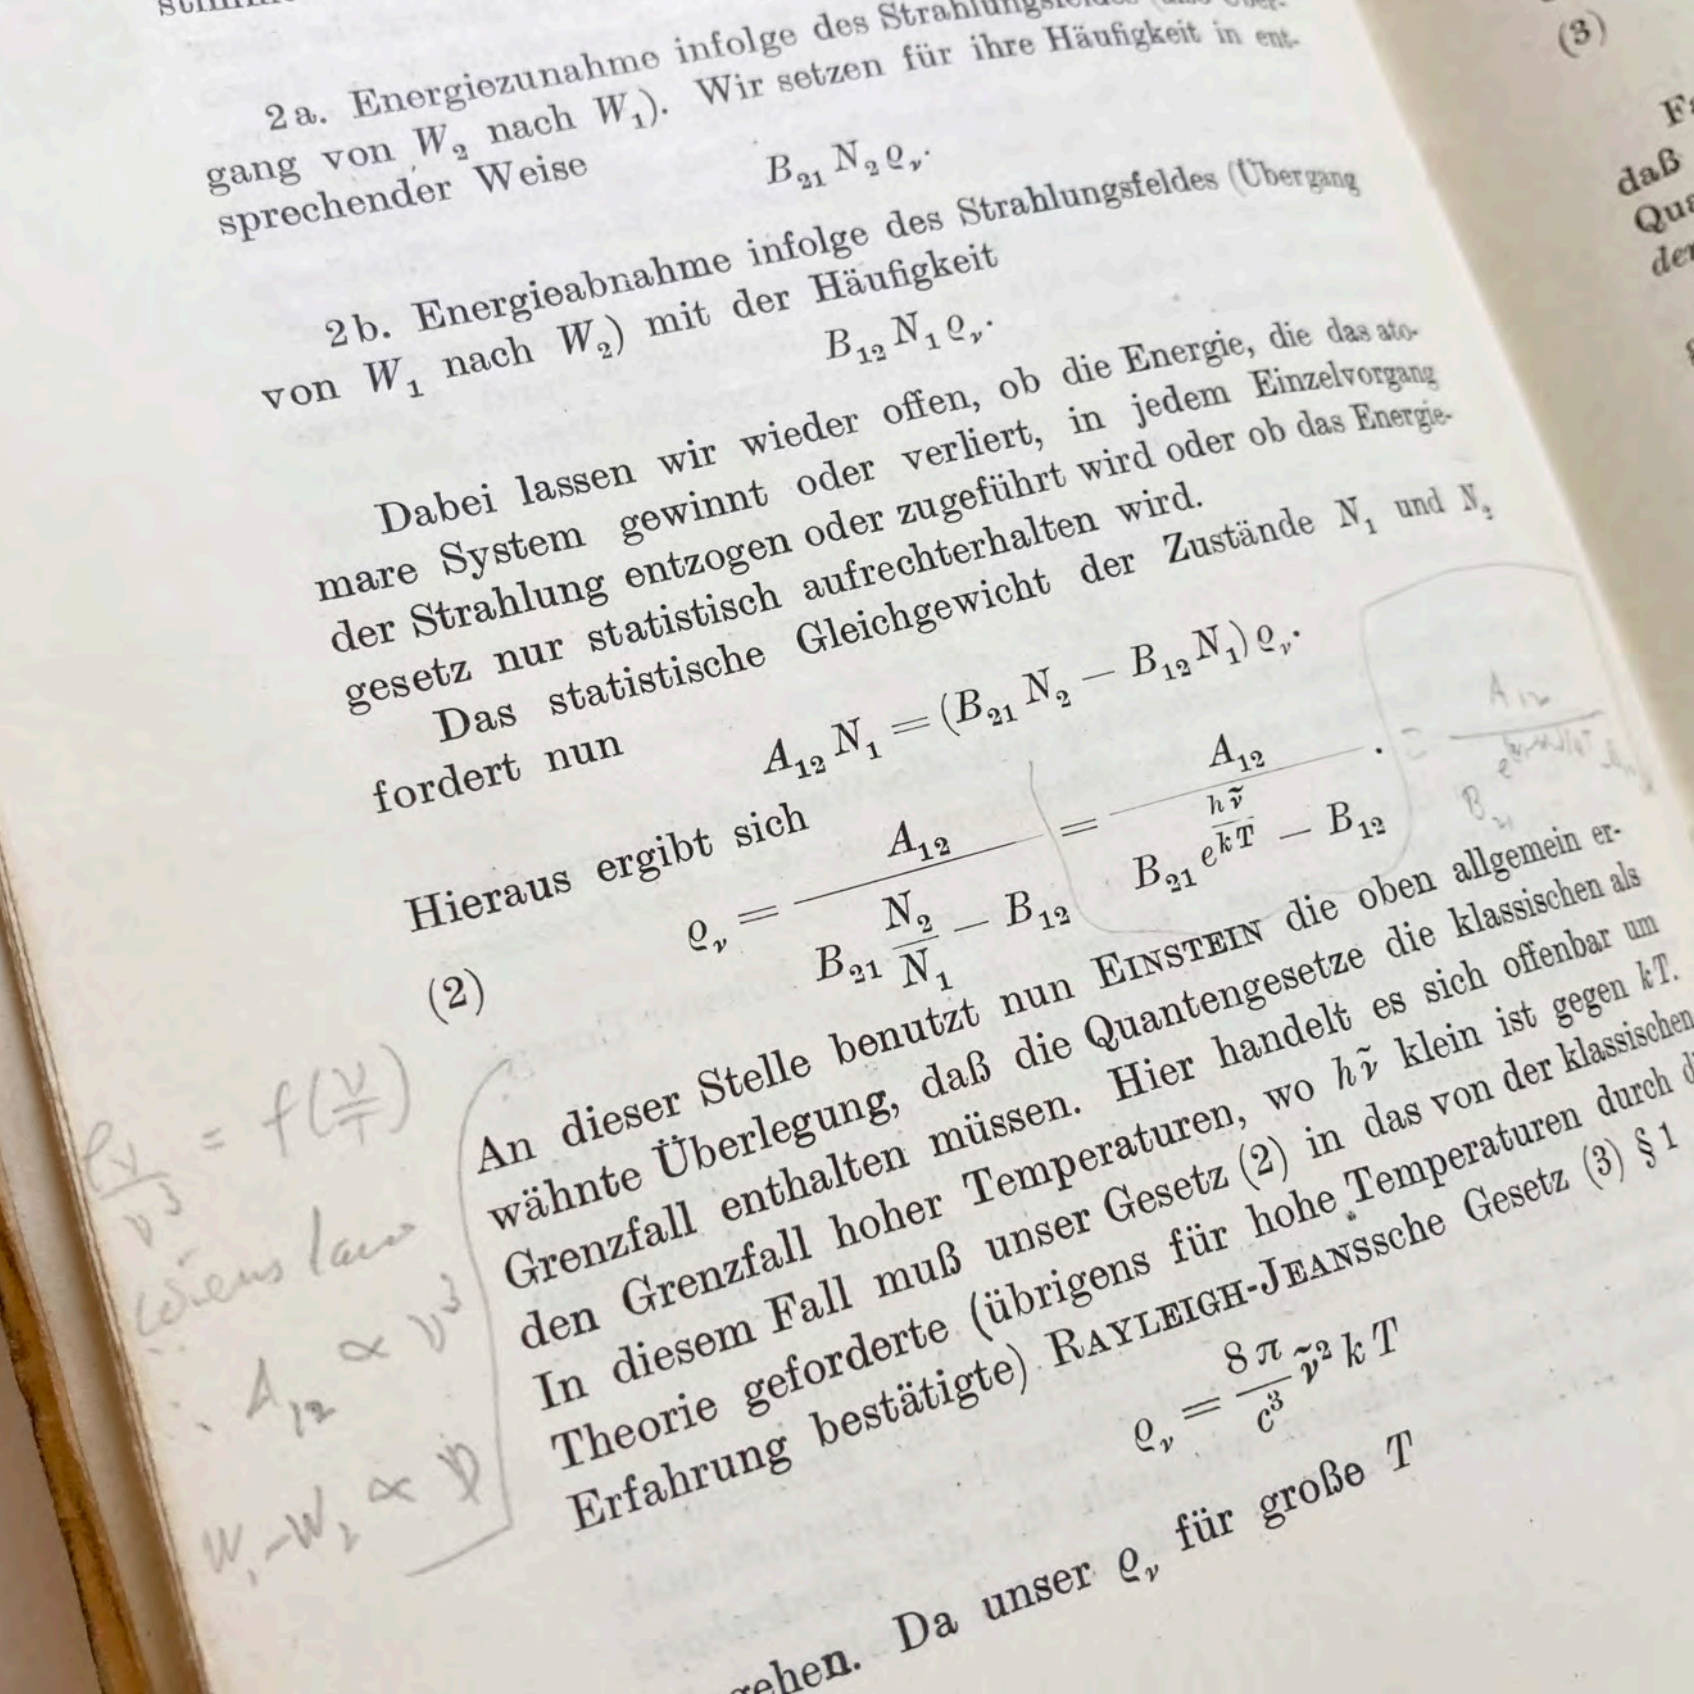 2a. Energiezunahme infolge des
gang von W₂ nach W₁). Wir setzen für ihre Häufigkeit in ent-
sprechender Weise
B₂₁ N₂ ϱᵥ.
2b. Energieabnahme infolge des Strahlungsfeldes (Übergang
von W₁ nach W₂) mit der Häufigkeit
B₁₂ N₁ ϱᵥ.
Dabei lassen wir wieder offen, ob die Energie, die das ato-
mare System gewinnt oder verliert, in jedem Einzelvorgang
der Strahlung entzogen oder zugeführt wird oder ob das Energie-
gesetz nur statistisch aufrechterhalten wird.
Das statistische Gleichgewicht der Zustände N₁ und N₂
fordert nun
A₁₂ N₁ = (B₂₁ N₂ − B₁₂ N₁) ϱᵥ.
Hieraus ergibt sich
(2) ϱᵥ = A₁₂ / (B₂₁ N₂/N₁ − B₁₂) = A₁₂ / (B₂₁ e^(hν̃/kT) − B₁₂).
= A₁₂
B₂₁
An dieser Stelle benutzt nun EINSTEIN die oben allgemein er-
wähnte Überlegung, daß die Quantengesetze die klassischen als
Grenzfall enthalten müssen. Hier handelt es sich offenbar um
den Grenzfall hoher Temperaturen, wo hν̃ klein ist gegen kT.
In diesem Fall muß unser Gesetz (2) in das von der klassischen
Theorie geforderte (übrigens für hohe Temperaturen durch
Erfahrung bestätigte) RAYLEIGH-JEANSsche Gesetz (3) § 1
ϱᵥ = 8π/c³ ν̃² k T
gehen. Da unser ϱᵥ für große T
ϱᵥ/ν³ = f(ν/T)
Wiens law
∴ A₁₂ ∝ ν³
W₁−W₂ ∝ ν
(3)
daß